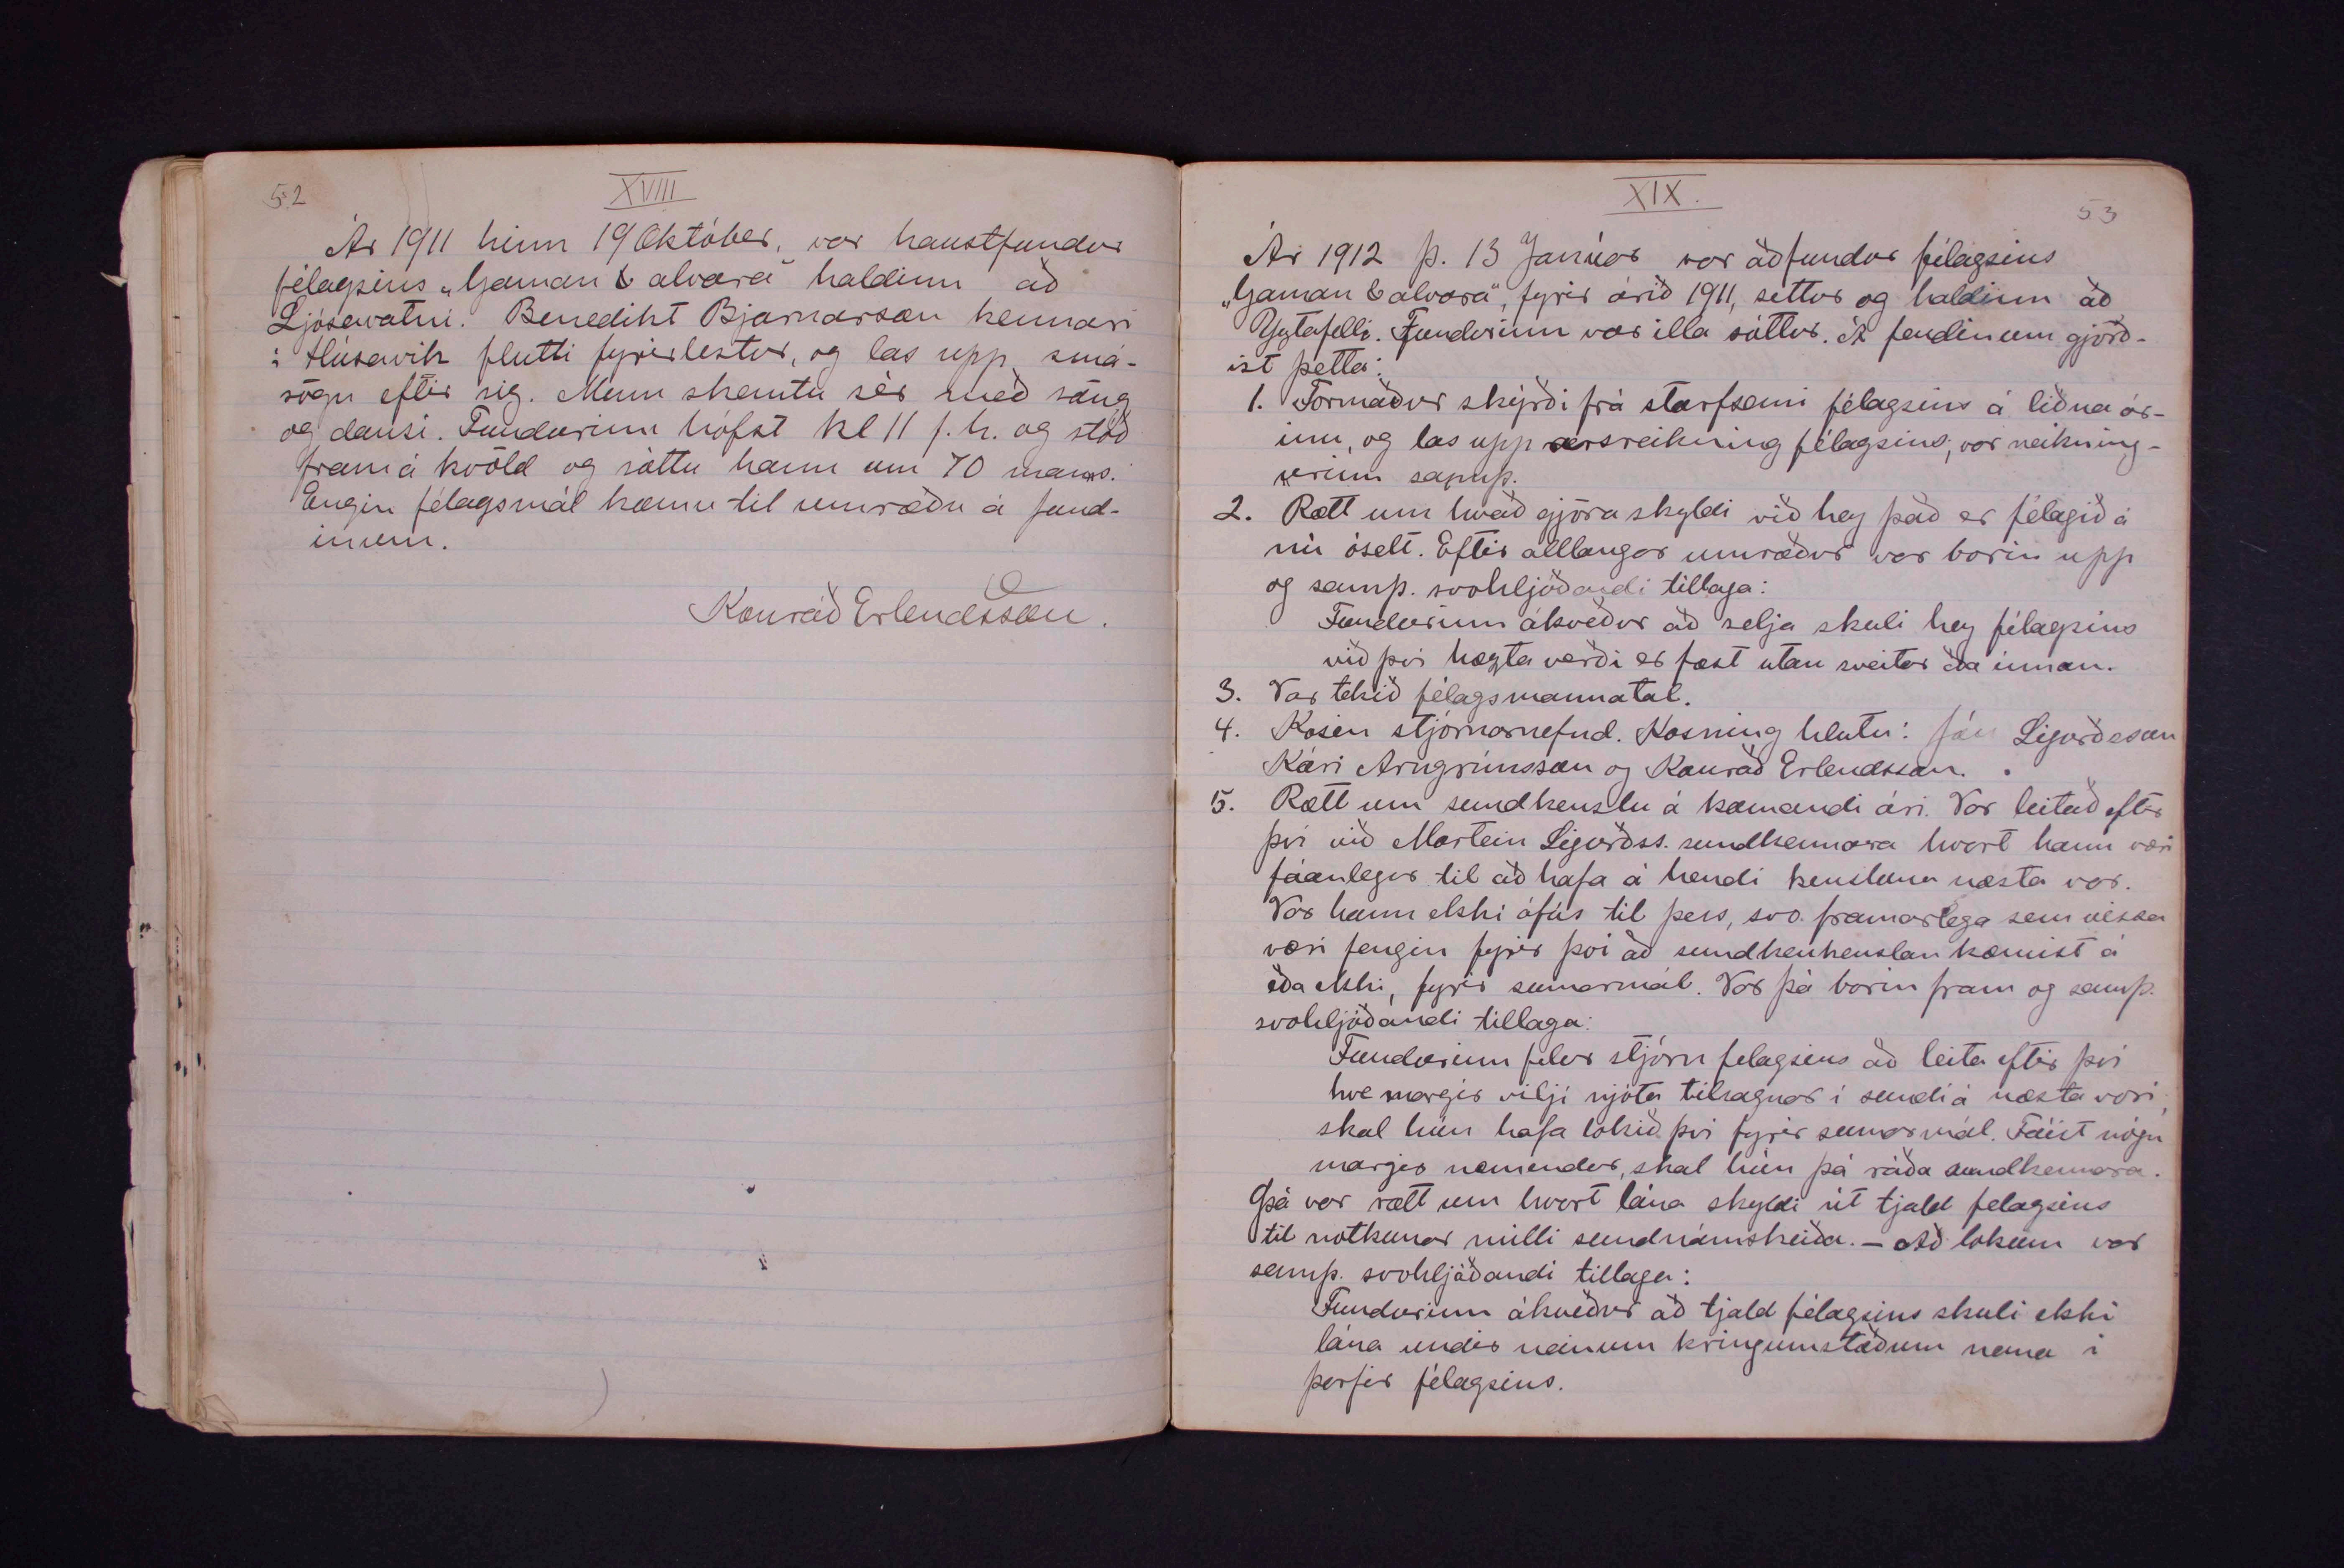 52
XVIII
Ár 1911 hinn 19 Október, var haustfundur
félagsins „Gaman & alvara" haldinn að
Ljósavatni. Benedikt Bjarnarson kennari
í Húsavík flutti fyrirlestur, og las upp smá-
sögu eftir sig. Menn skemtu sér með söng
og dansi. Fundurinn hófst kl 11 f.h. og stóð
fram á kvöld og sóttu hann um 70 manns.
Engin félagsmál komu til umræðu á fund-
inum.
Konráð Erlendsson.
XIX.
53
Ár 1912 þ. 13 Janúar var aðfundur félagsins
„Gaman & alvara", fyrir árið 1911, settur og haldinn að
Yztafelli. Fundurinn var illa sóttur. Á fundinum gjörð-
ist þetta:
1. Formaður skýrði frá starfsemi félagsins á liðna ár-
inu, og las upp ársreikning félagsins; var reikning-
urinn samþ.
2. Rætt um hvað gjöra skyldi við hey það er félagið á
nú óselt. Eftir alllangar umræður var borin upp
og samþ. svohljóðandi tillaga:
Fundurinn ákveður að selja skuli hey félagsins
við því hæzta verði er fæst utan sveitar eða innan.
3. Var tekið félagsmannatal.
4. Kosin stjórnarnefnd. Kosning hlutu: Jón Sigurðsson
Kári Arngrímsson og Konráð Erlendsson.
5. Rætt um sundkenslu á komandi ári. Var leitað eftir
því við Martein Sigurðss. sundkennara hvort hann væri
fáanlegur til að hafa á hendi kensluna næsta vor.
Var hann ekki ófús til þess, svo framarlega sem vissa
væri fengin fyrir því að sundkenkenslan kæmist á
eða ekki, fyrir sumarmál. Var þá borin fram og samþ.
svohljóðandi tillaga:
Fundurinn felur stjórn felagsins að leita eftir því
hve margir vilji njóta tilsagnar í sundi á næsta vori,
skal hún hafa lokið því fyrir sumarmál. Fáist nógu
margir nemendur, skal hún þá ráða sundkennara.
Þá var rætt um hvort lána skyldi út tjald felagsins
til notkunar milli sundnámskeiða. – Að lokum var
samþ. svohljóðandi tillaga:
Fundurinn ákveður að tjald félagsins skuli ekki
lána undir neinum kringumstæðum nema í
þarfir félagsins.